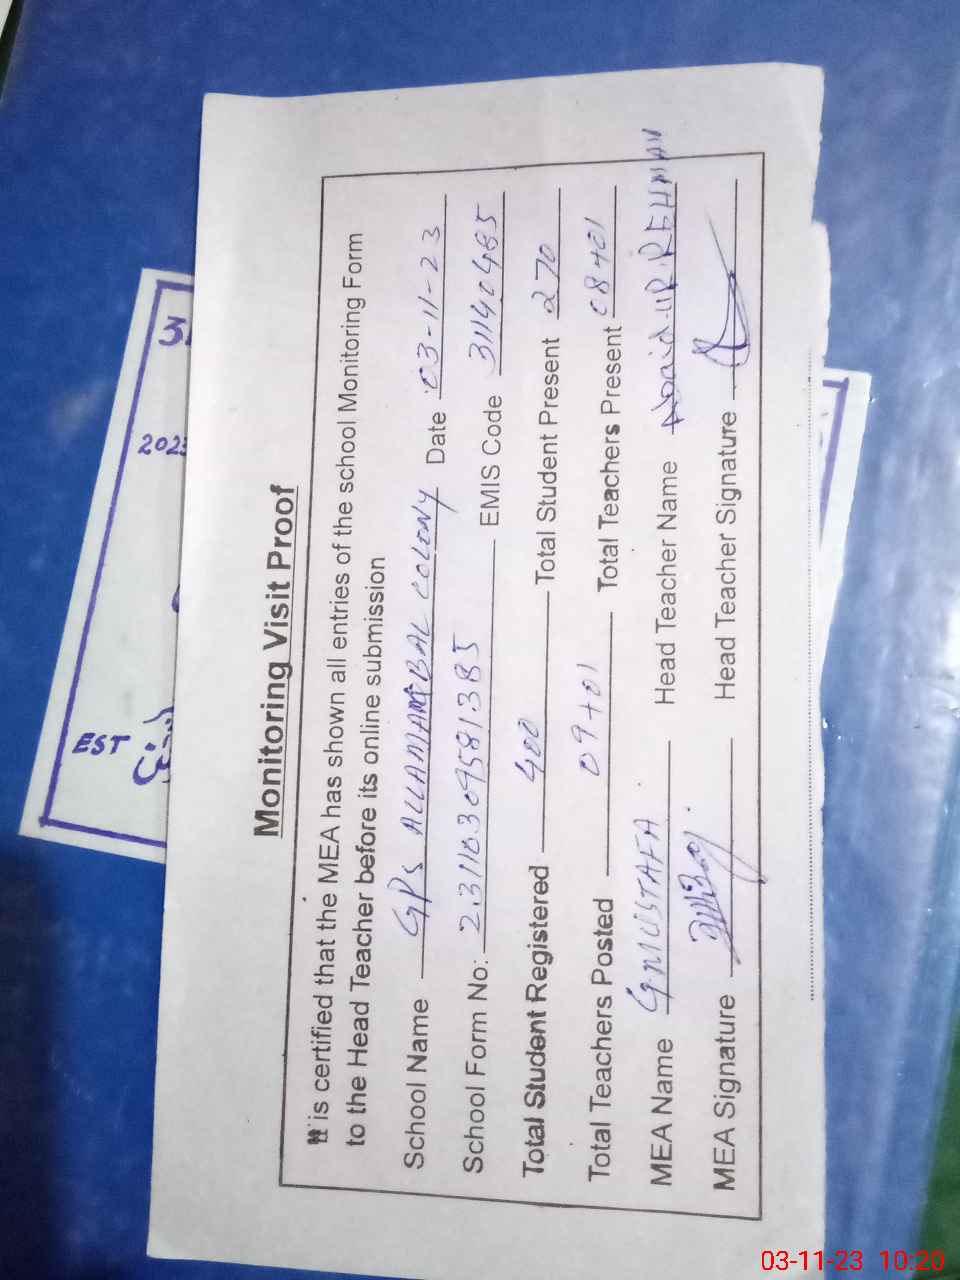 Monitoring Visit Proof
It is certified that the MEA has shown all entries of the school Monitoring Form
to the Head Teacher before its online submission
School Name GPS ALLAMAIQBAL COLONY Date 03-11-23
School Form No: 23110309581385 EMIS Code 31140485
Total Student Registered 400 Total Student Present 270
Total Teachers Posted 09+01 Total Teachers Present 08+01
MEA Name G.MUSTAFA Head Teacher Name UR.REHMAN
MEA Signature Head Teacher Signature
EST
2023
03-11-23 10:20